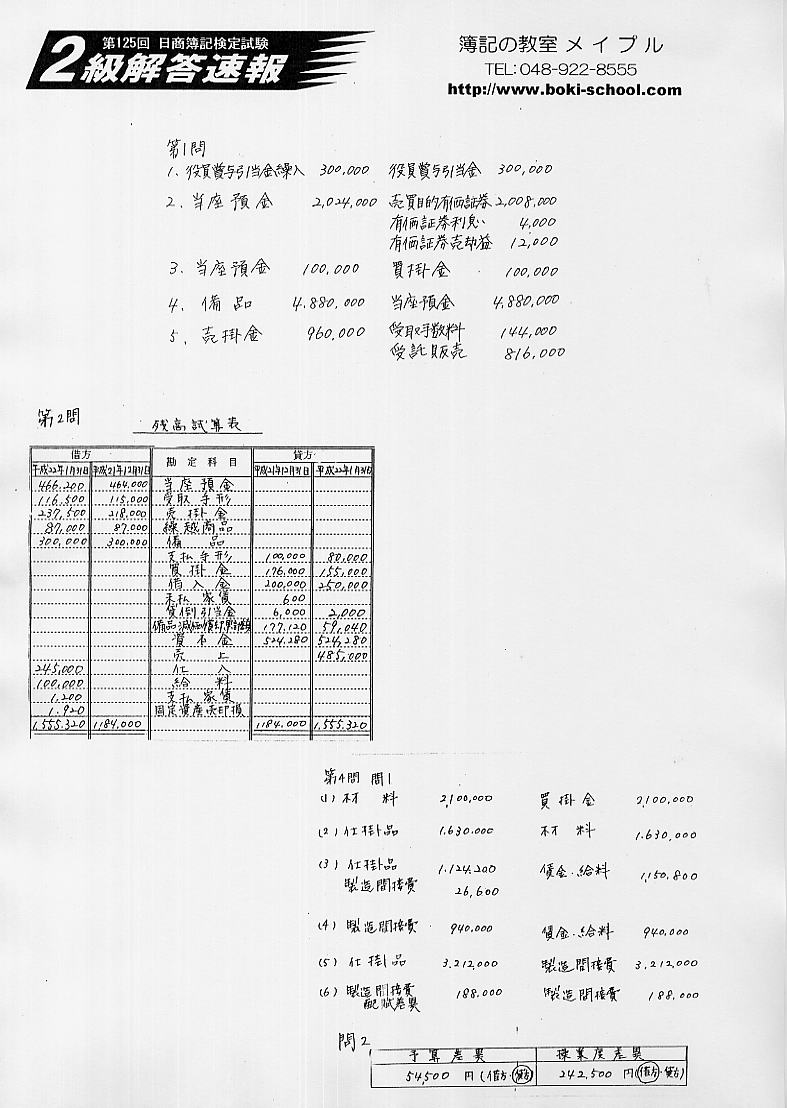 第125回 日商簿記検定試験
2級解答速報
簿記の教室 メイプル
TEL:048-922-8555
http://www.boki-school.com
第1問
1. 役員賞与引当金繰入 300,000 役員賞与引当金 300,000
2. 当座預金 2,024,000 売買目的有価証券 2,008,000
有価証券利息 4,000
有価証券売却益 12,000
3. 当座預金 100,000 買掛金 100,000
4. 備品 4.880,000 当座預金 4.880,000
5. 売掛金 960,000 受取手数料 144,000
受託販売 816,000
第2問
残高試算表
借方 勘定科目 貸方
平成22年1月31日 平成21年12月31日 平成21年12月31日 平成22年1月31日
466.200 464,000 当座預金
116,500 115,000 受取手形
237,500 218,000 売掛金
87,000 87.000 繰越商品
300,000 300,000 備品
支払手形 100,000 80,000
買掛金 176,000 155,000
借入金 200,000 250,000
未払家賃 600
貸倒引当金 6,000 2,000
備品減価償却累計額 177.120 59,040
資本金 524.280 524,280
売上 485,000
245,000 仕入
100,000 給料
1.200 支払家賃
1.920 固定資産売却損
1,555.320 1,184,000 1,184.000 1,555.320
第4問 問1
(1) 材料 2,100,000 買掛金 2,100,000
(2) 仕掛品 1.630.000 材料 1.630,000
(3) 仕掛品 1.124.200 賃金・給料 1,150,800
製造間接費 26,600
(4) 製造間接費 940,000 賃金・給料 940,000
(5) 仕掛品 3.212,000 製造間接費 3,212,000
(6) 製造間接費配賦差異 188.000 製造間接費 188,000
問2
予算差異 操業度差異
54,500 円(借方・貸方) 242,500 円(借方・貸方)